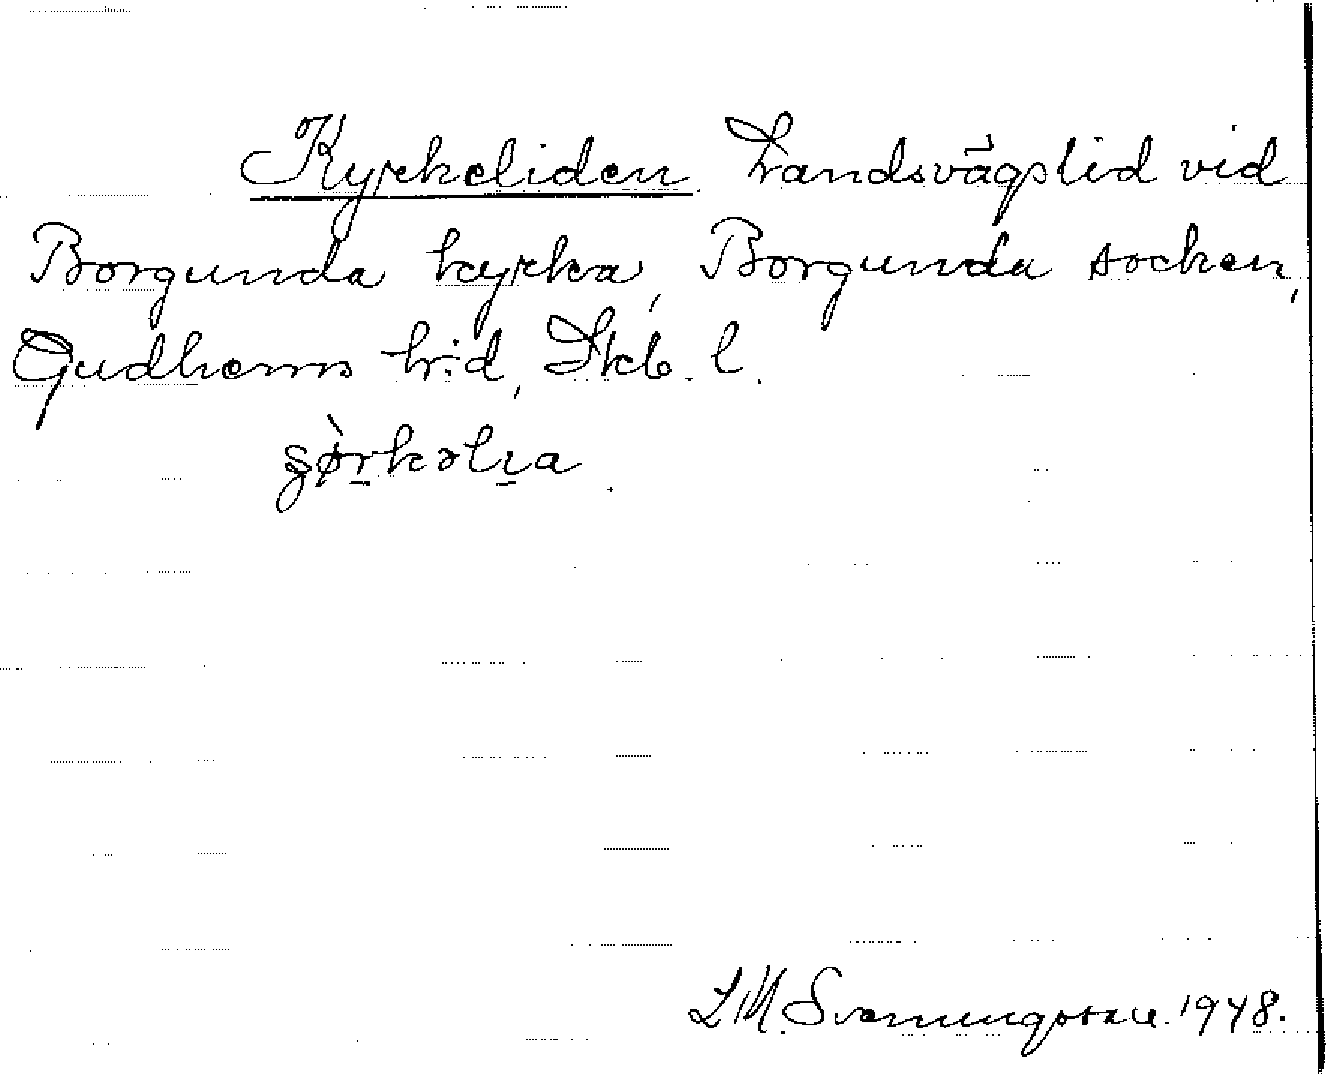 Kyrkeliden. Landsvägslid vid
Borgunda kyrka, Borgunda socken,
Gudhems h:d, Skb. l.
L M. Svenungsson. 1948.